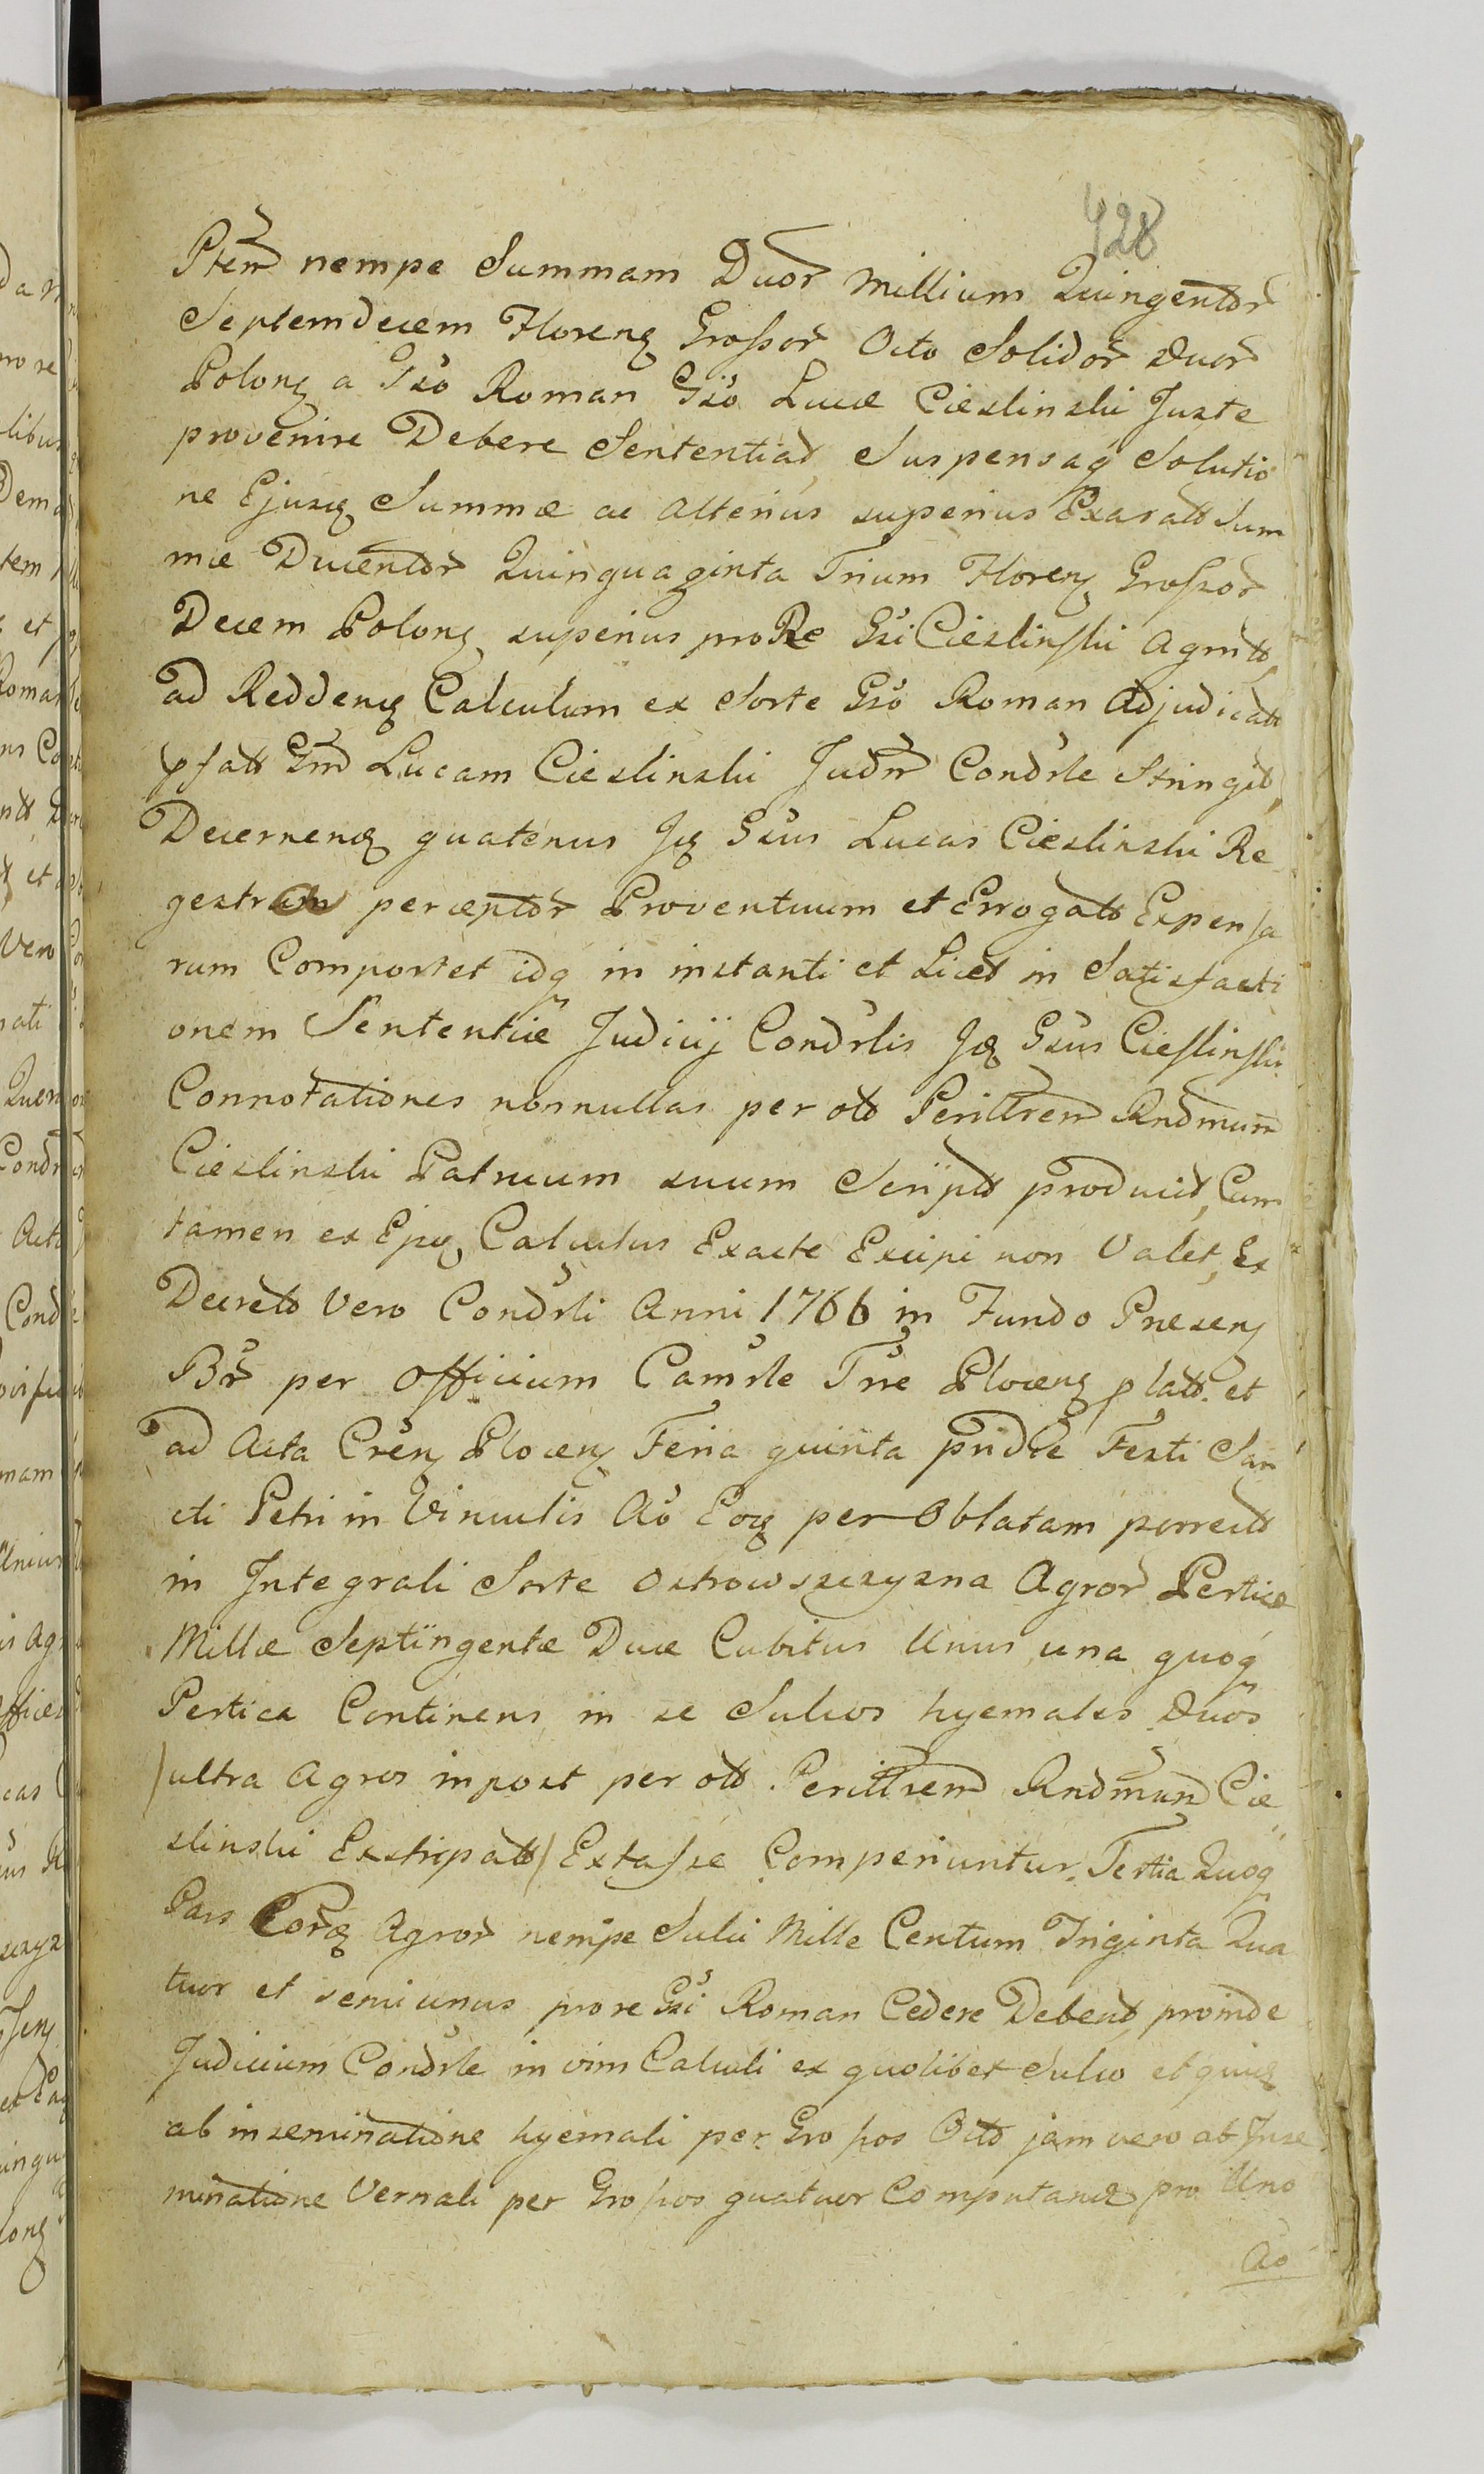 428
Ptem nempe Summam Duor millium Quingentor
Septemdecem Florenz Grossor Octo Solidor Duor
Polonz a Gso Roman Gso Lucæ Cieslinski Juste
provenire Debere Sententiat, Suspensaq Solutio
ne Ejusz Summæ ac alterius superius Exaratt Sum
mæ Ducentor Quinquaginta Trium Florenz Grossor
Decem Polonz superius pro Re Gsi Cieslinski Agnitt
ad Reddenz Calculum ex Sorte Gso Roman Adjudicatt
pfatt Gm Lucam Cieslinski Judm Condrle Stringit,
Decernenz quatenus Jz Gsus Lucas Cieslinski Re
gestrum perceptor Proventuum et Errogatt Expensa
rum Comportet idq in instanti et Licet in Satisfacti
onem Sententiæ Judicij Condrlis Jz Gsus Cieslinski
Connotationes nonnullas per ott Perillrem Rndmum
Cieslinski Patruum suum Script producit, Cum
tamen ex Epz Calculus Exacte Excipi non Valet, Ex
Decreto Vero Condrli Anni 1766 in Fundo Presenz
Br per Officium Camrle Trre Plocenz platt et
ad Acta Crên Plocenz Feria quinta pridie Festi San
cti Petri in Vinculis Ao Eoz per Oblatam porrect
in Integrali Sorte Ostrowszczyzna Agror Perticæ
Millæ Septingentæ Duæ Cubitus Unus una quoq
Pertica Continens in se Sulcos hyemales Duos
/ultra Agros in post per ott Perillrem Rndmum Cie
slinski Exstirpatt/ Extasse Comperiuntur. Tertia Quoq
Pars Eorz Agror nempe Sulci Mille Centum Triginta Qua
tuor et semi unus pro re Gsi Roman Cedere Debent, proinde
Judicium Condrle in vim Calculi ex quolibet Sulco et quiz
ab inseminatione hyemali per Grossos Octo jam vero ab Inse
minatione Vernali per Grossos quatuor Computanz pro Uno
Ao